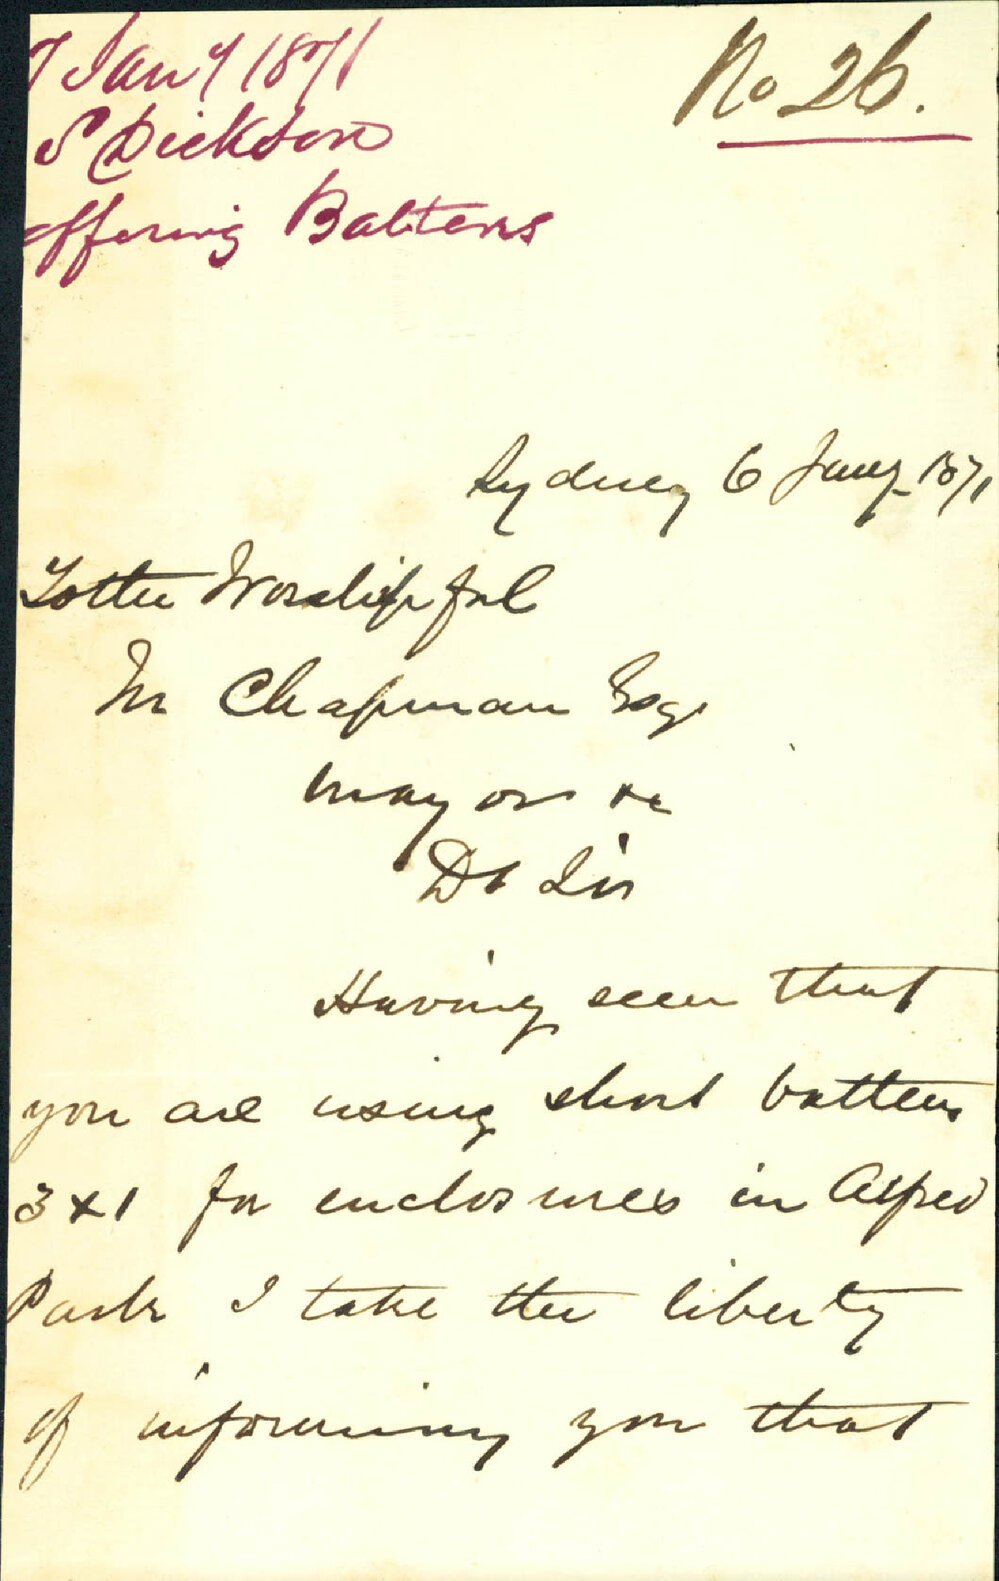 7 Jany 1871
S Dickson
offering Battens
No 26.
Sydney 6 Jany. 1871
To the Worshipful
M Chapman Esqr
Mayor &c
Dr Sir
Having seen that
you are using short battens
3 x 1 for enclosures in Alfred
Park I take the liberty
of informing you that